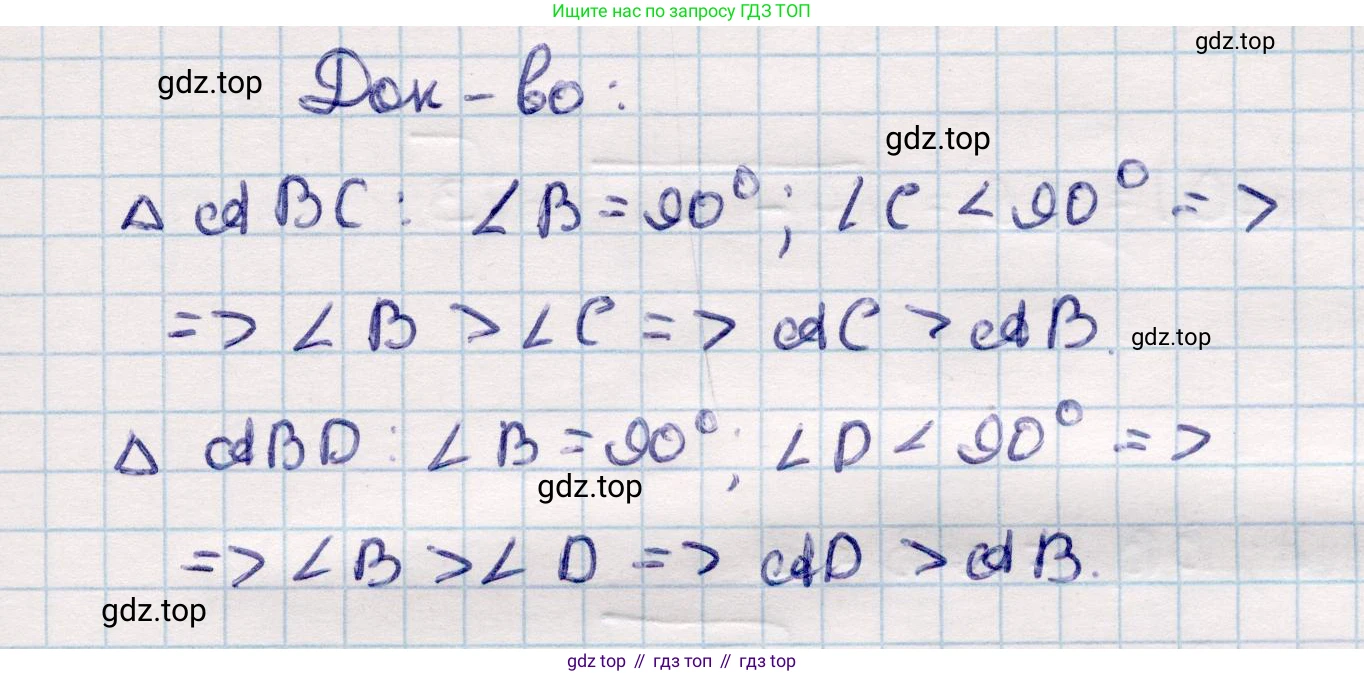 Ищите нас по запросу ГДЗ ТОП
gdz.top
gdz.top Док-во:
gdz.top
△ ABC: ∠B = 90°; ∠C < 90° =>
=> ∠B > ∠C => AC > AB.
gdz.top
△ ABD: ∠B = 90°; ∠D < 90° =>
gdz.top
=> ∠B > ∠D => AD > AB.
gdz.top
gdz.top // гдз топ // гдз.top